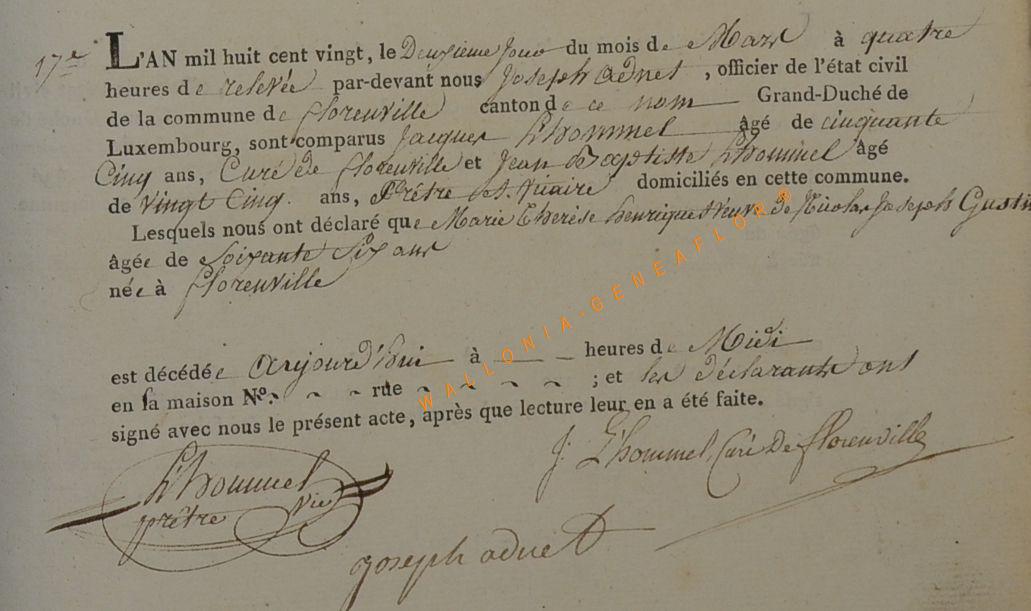 17e
L'AN mil huit cent vingt, le Deuxieme Jour du mois de Mars à quatre
heures de relevée par-devant nous Joseph adnet, officier de l'état civil
de la commune de florenville canton de ce nom Grand-Duché de
Luxembourg, sont comparus Jacques L'hommel âgé de cinquante
Cinq ans, Curé de florenville et Jean Baptiste L'hommel âgé
de vingt Cinq. ans, Prêtre et Vicaire domiciliés en cette commune.
Lesquels nous ont déclaré que Marie Therèse henrique Veuve de Nicolas Joseph Gustin
âgée de Soixante Six ans
née à florenville
est décédée aujourd'hui à heures de Midi
en sa maison N°. rue ; et les déclarants ont
signé avec nous le présent acte, après que lecture leur en a été faite.
L'hommel
prêtre Vic
J. L'hommel, Curé De florenville
joseph adnet
WALLONIA-GENEAFLOR®